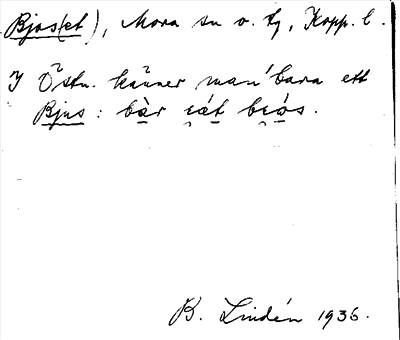 Bjos(et), Mora sn o. tg, Kopp. l.
I Östn. känner man bara ett
Bjus: bàr eát beós.
B. Lindén 1936.